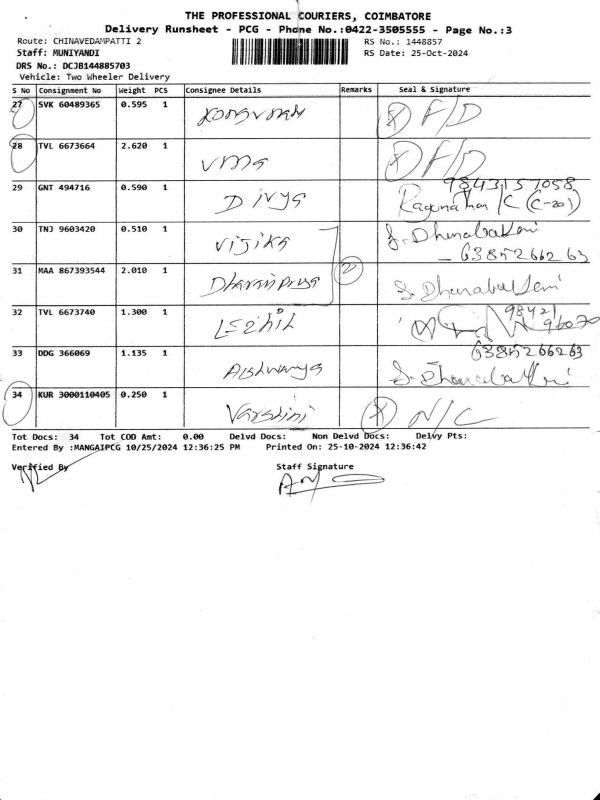 THE PROFESSIONAL COURIERS, COIMBATORE
Delivery Runsheet - PCG - Phone No.:0422-3505555 - Page No.:3
Route: CHINAVEDAMPATTI 2 RS No.: 1448857
Staff: MUNIYANDI RS Date: 25-Oct-2024
DRS No.: DCJB144885703
Vehicle: Two Wheeler Delivery
S No Consignment No Weight PCS Consignee Details Remarks Seal & Signature
27 SVK 60489365 0.595 1 F/D
28 TVL 6673664 2.620 1 Uma F/D
29 GNT 494716 0.590 1 Divya 9843157058
Ragunathan /C (C-201)
30 TNJ 9603420 0.510 1 Vijika S. Dhanabakeni
- 6385266263
31 MAA 867393544 2.010 1 Dharanipriya 2 S. Dhanabakeni
32 TVL 6673740 1.300 1 LEZHIL 98421
96070
33 DDG 366069 1.135 1 Aishwarya 6385266263
S. Dhanabakeni
34 KUR 3000110405 0.250 1 Varshini N/C
Tot Docs: 34 Tot COD Amt: 0.00 Delvd Docs: Non Delvd Docs: Delvy Pts:
Entered By :MANGAIPCG 10/25/2024 12:36:25 PM Printed On: 25-10-2024 12:36:42
Verified By Staff Signature